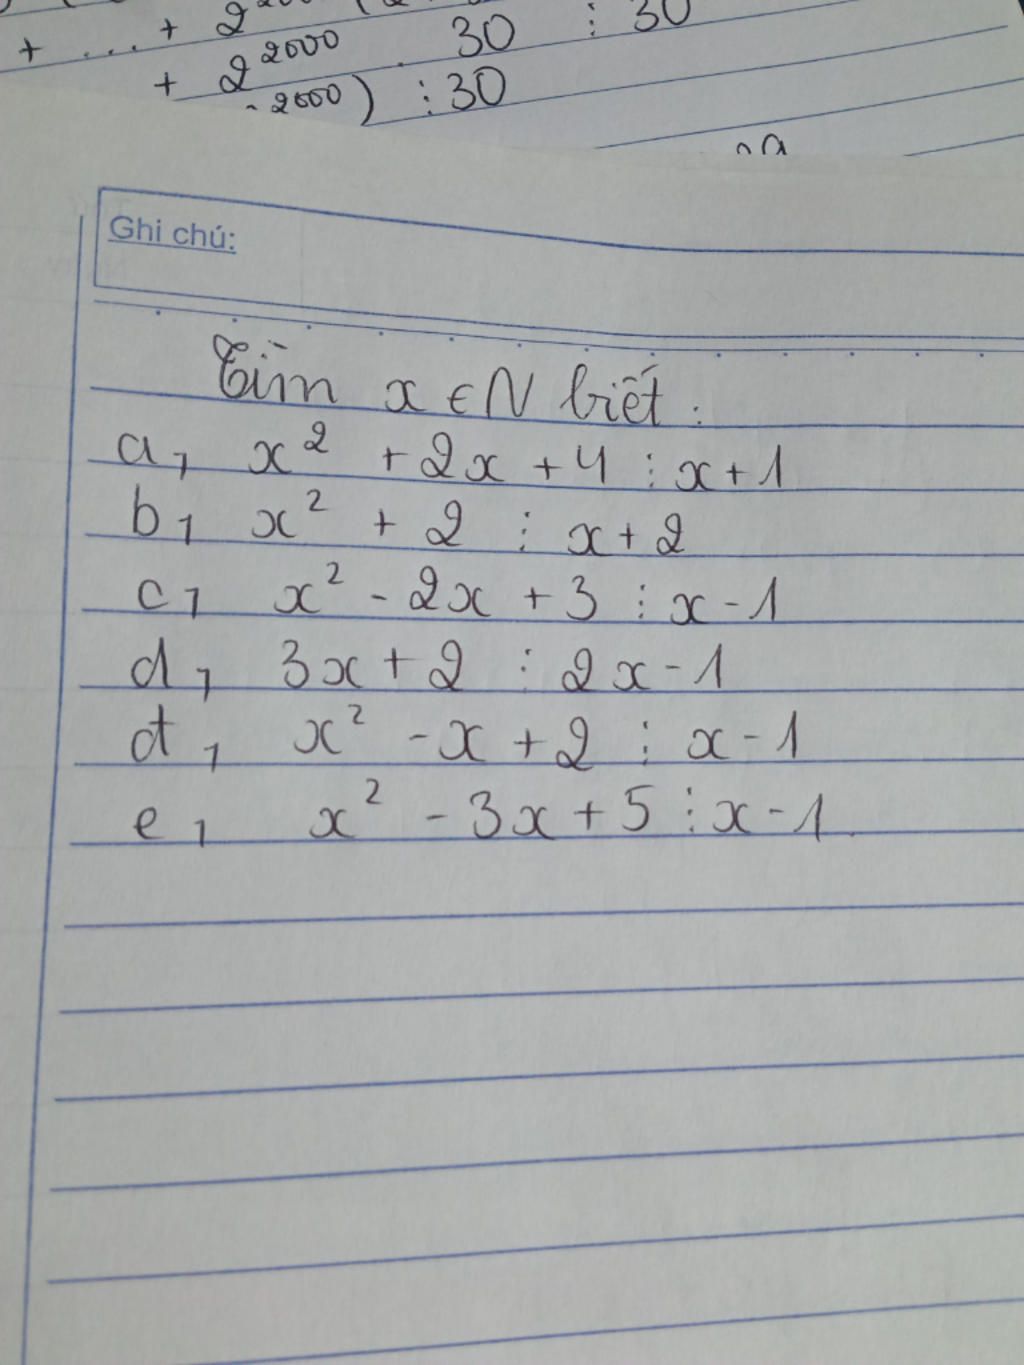 + ... + 2
+ 2²⁰⁰⁰ . 30 ⋮ 30
²⁰⁰⁰) ⋮ 30
Ghi chú:
Tìm x ∈ N biết :
a, x² + 2x + 4 ⋮ x + 1
b, x² + 2 ⋮ x + 2
c, x² - 2x + 3 ⋮ x - 1
d, 3x + 2 ⋮ 2x - 1
đ, x² - x + 2 ⋮ x - 1
e, x² - 3x + 5 ⋮ x - 1